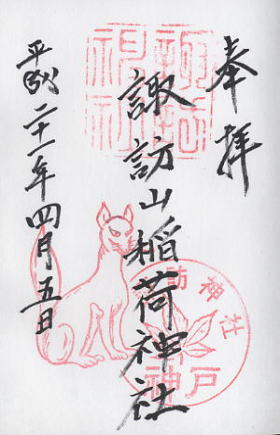 奉拝
諏訪山稲荷神社
平成二十一年四月五日
訪神社
神戸